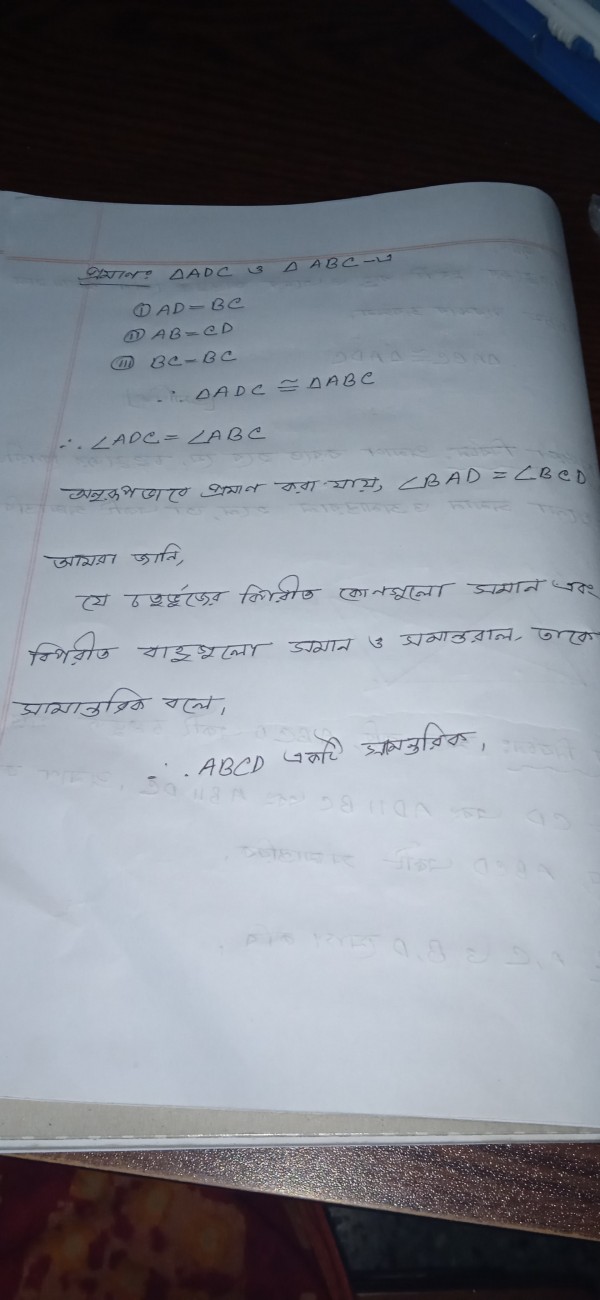 প্রমাণঃ ΔADC ও ΔABC-এ
(i) AD = BC
(ii) AB = CD
(iii) BC - BC
∴ ΔADC ≅ ΔABC
∴ ∠ADC = ∠ABC
অনুরূপভাবে প্রমাণ করা যায়, ∠BAD = ∠BCD
আমরা জানি,
যে চতুর্ভুজের বিপরীত কোনগুলো সমান এবং
বিপরীত বাহুগুলো সমান ও সমান্তরাল, তাকে
সামান্তরিক বলে,
∴ ABCD একটি সামন্তরিক,